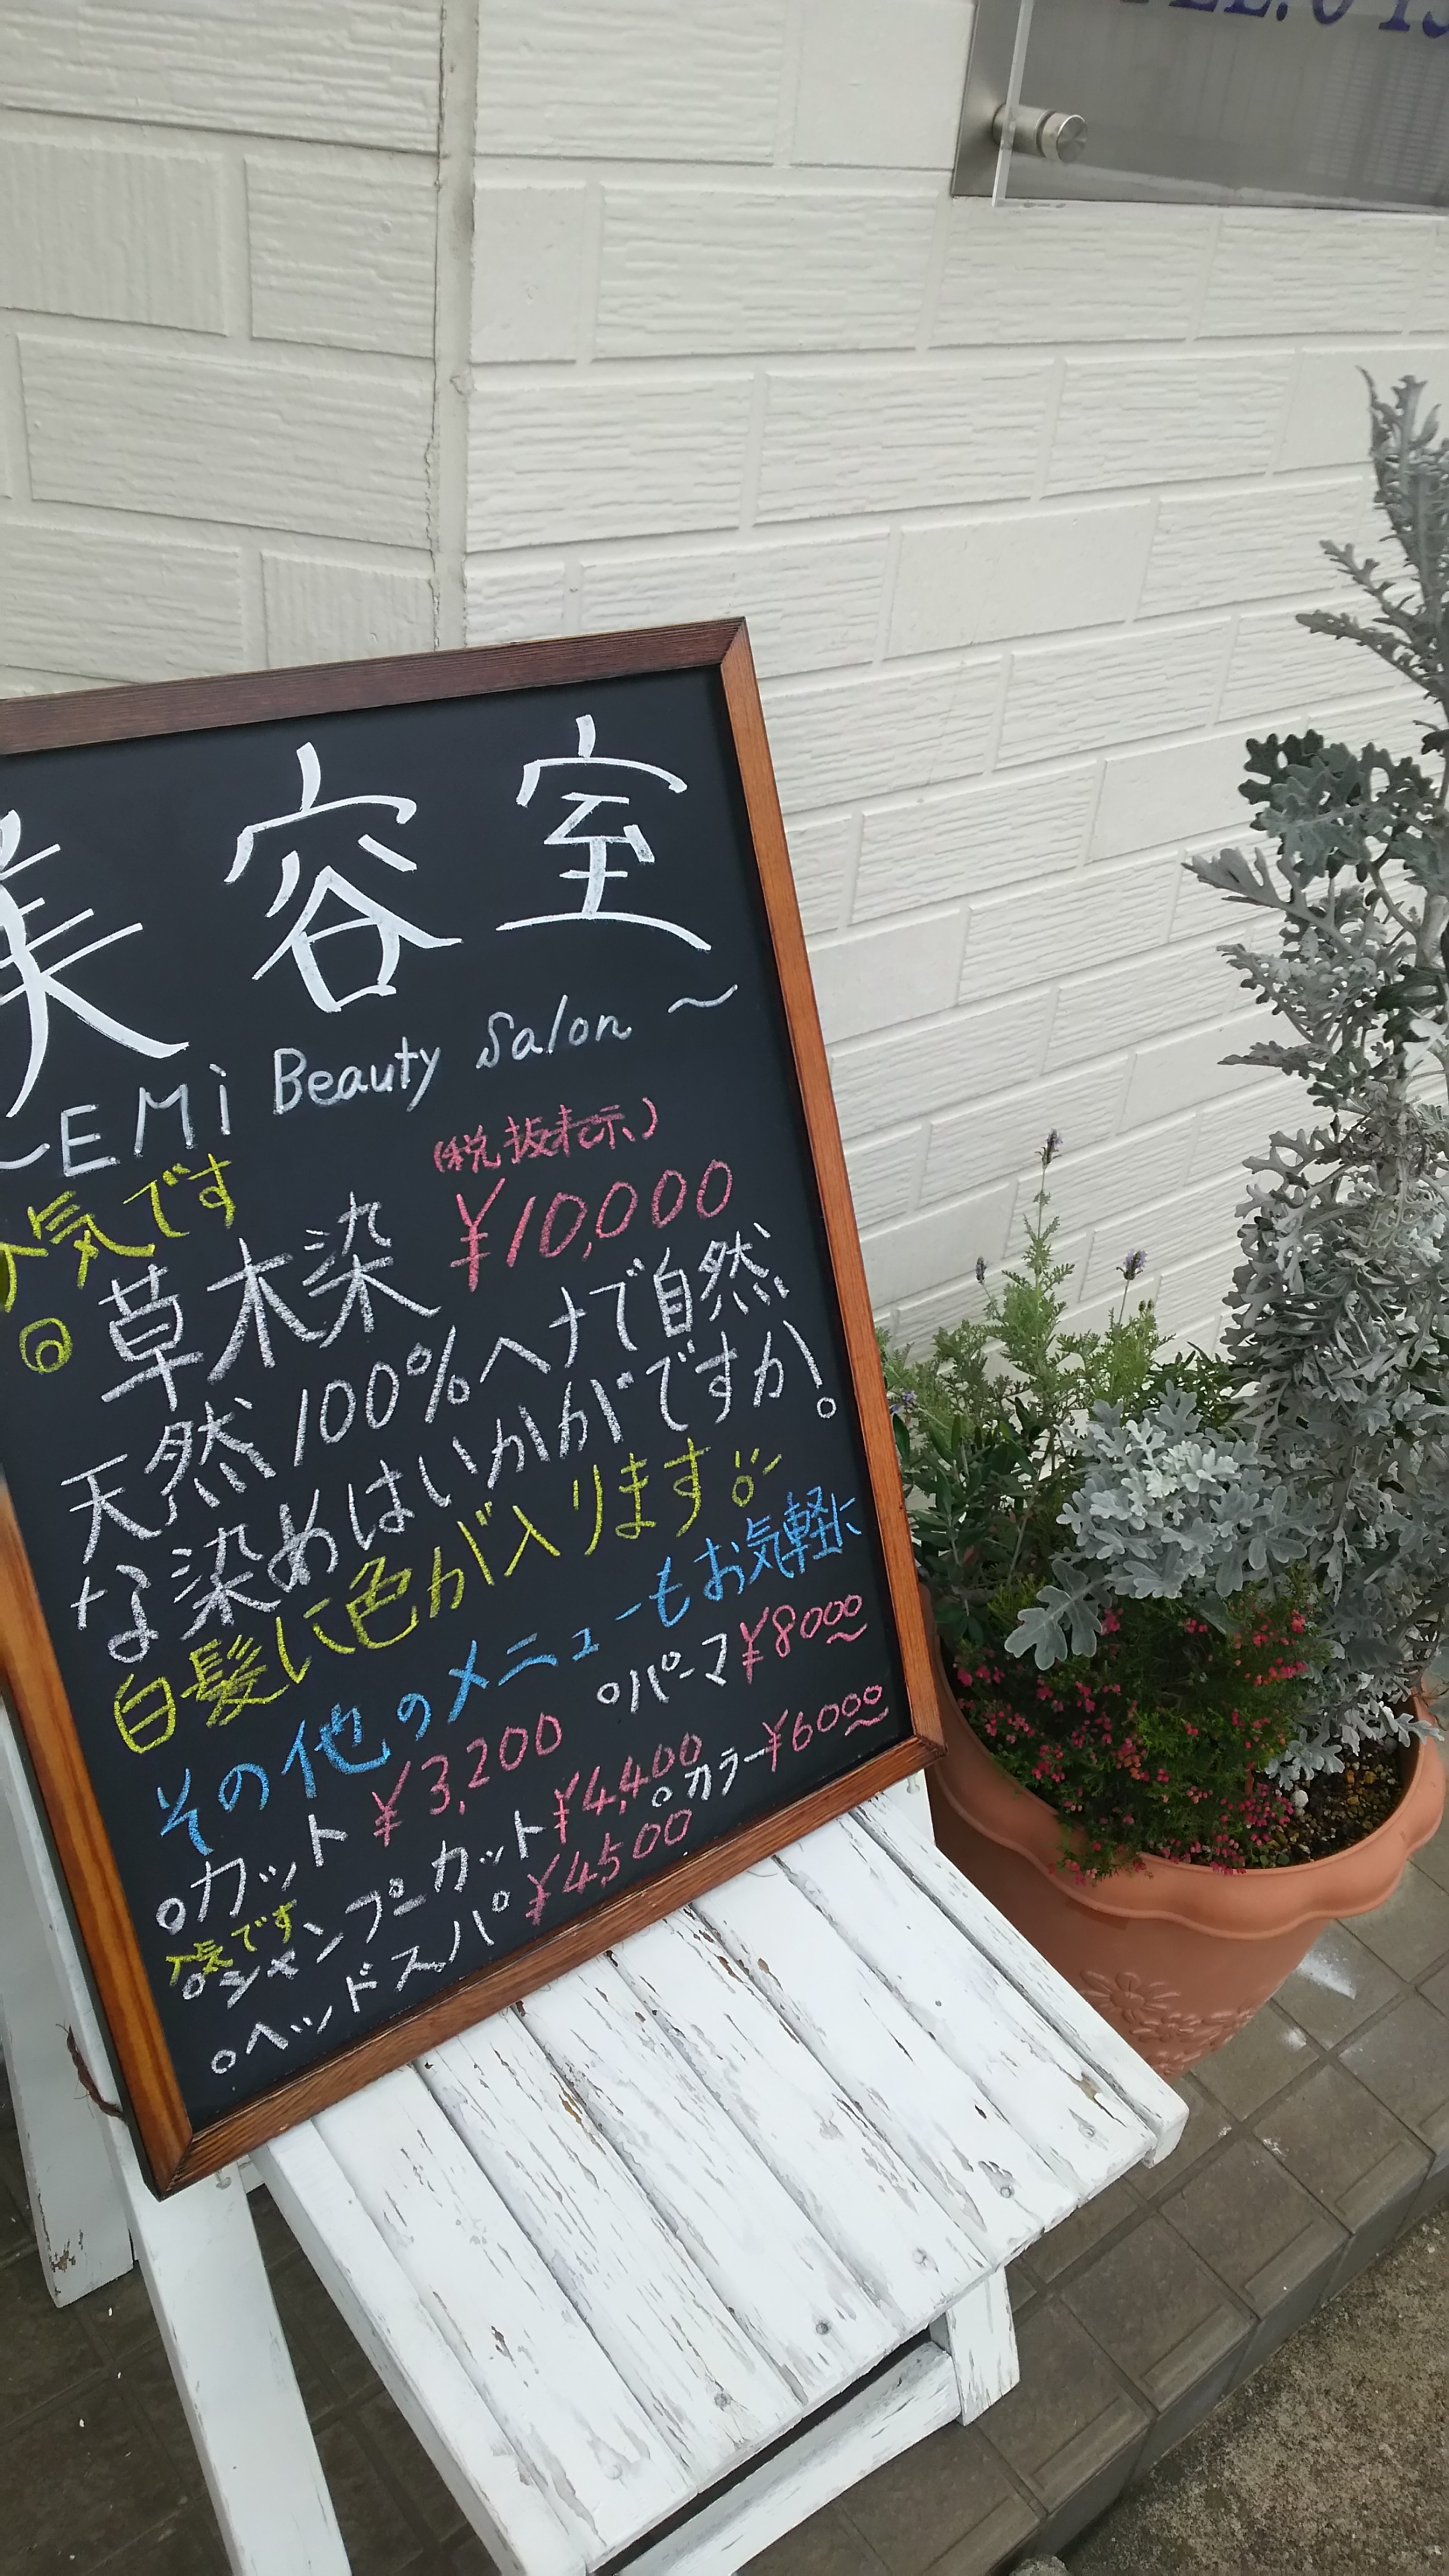 TEL. 0
美容室
~EMi Beauty Salon~
人気です
(税抜表示)
◎草木染 ¥10,000
天然100%ヘナで自然
な染めはいかがですか!
白髪に色が入ります
その他のメニューもお気軽に
○カット ¥3,200 ○パーマ¥8000~
人気です
○シャンプーカット¥4,400 ○カラー¥6000~
○ヘッドスパ ¥4500